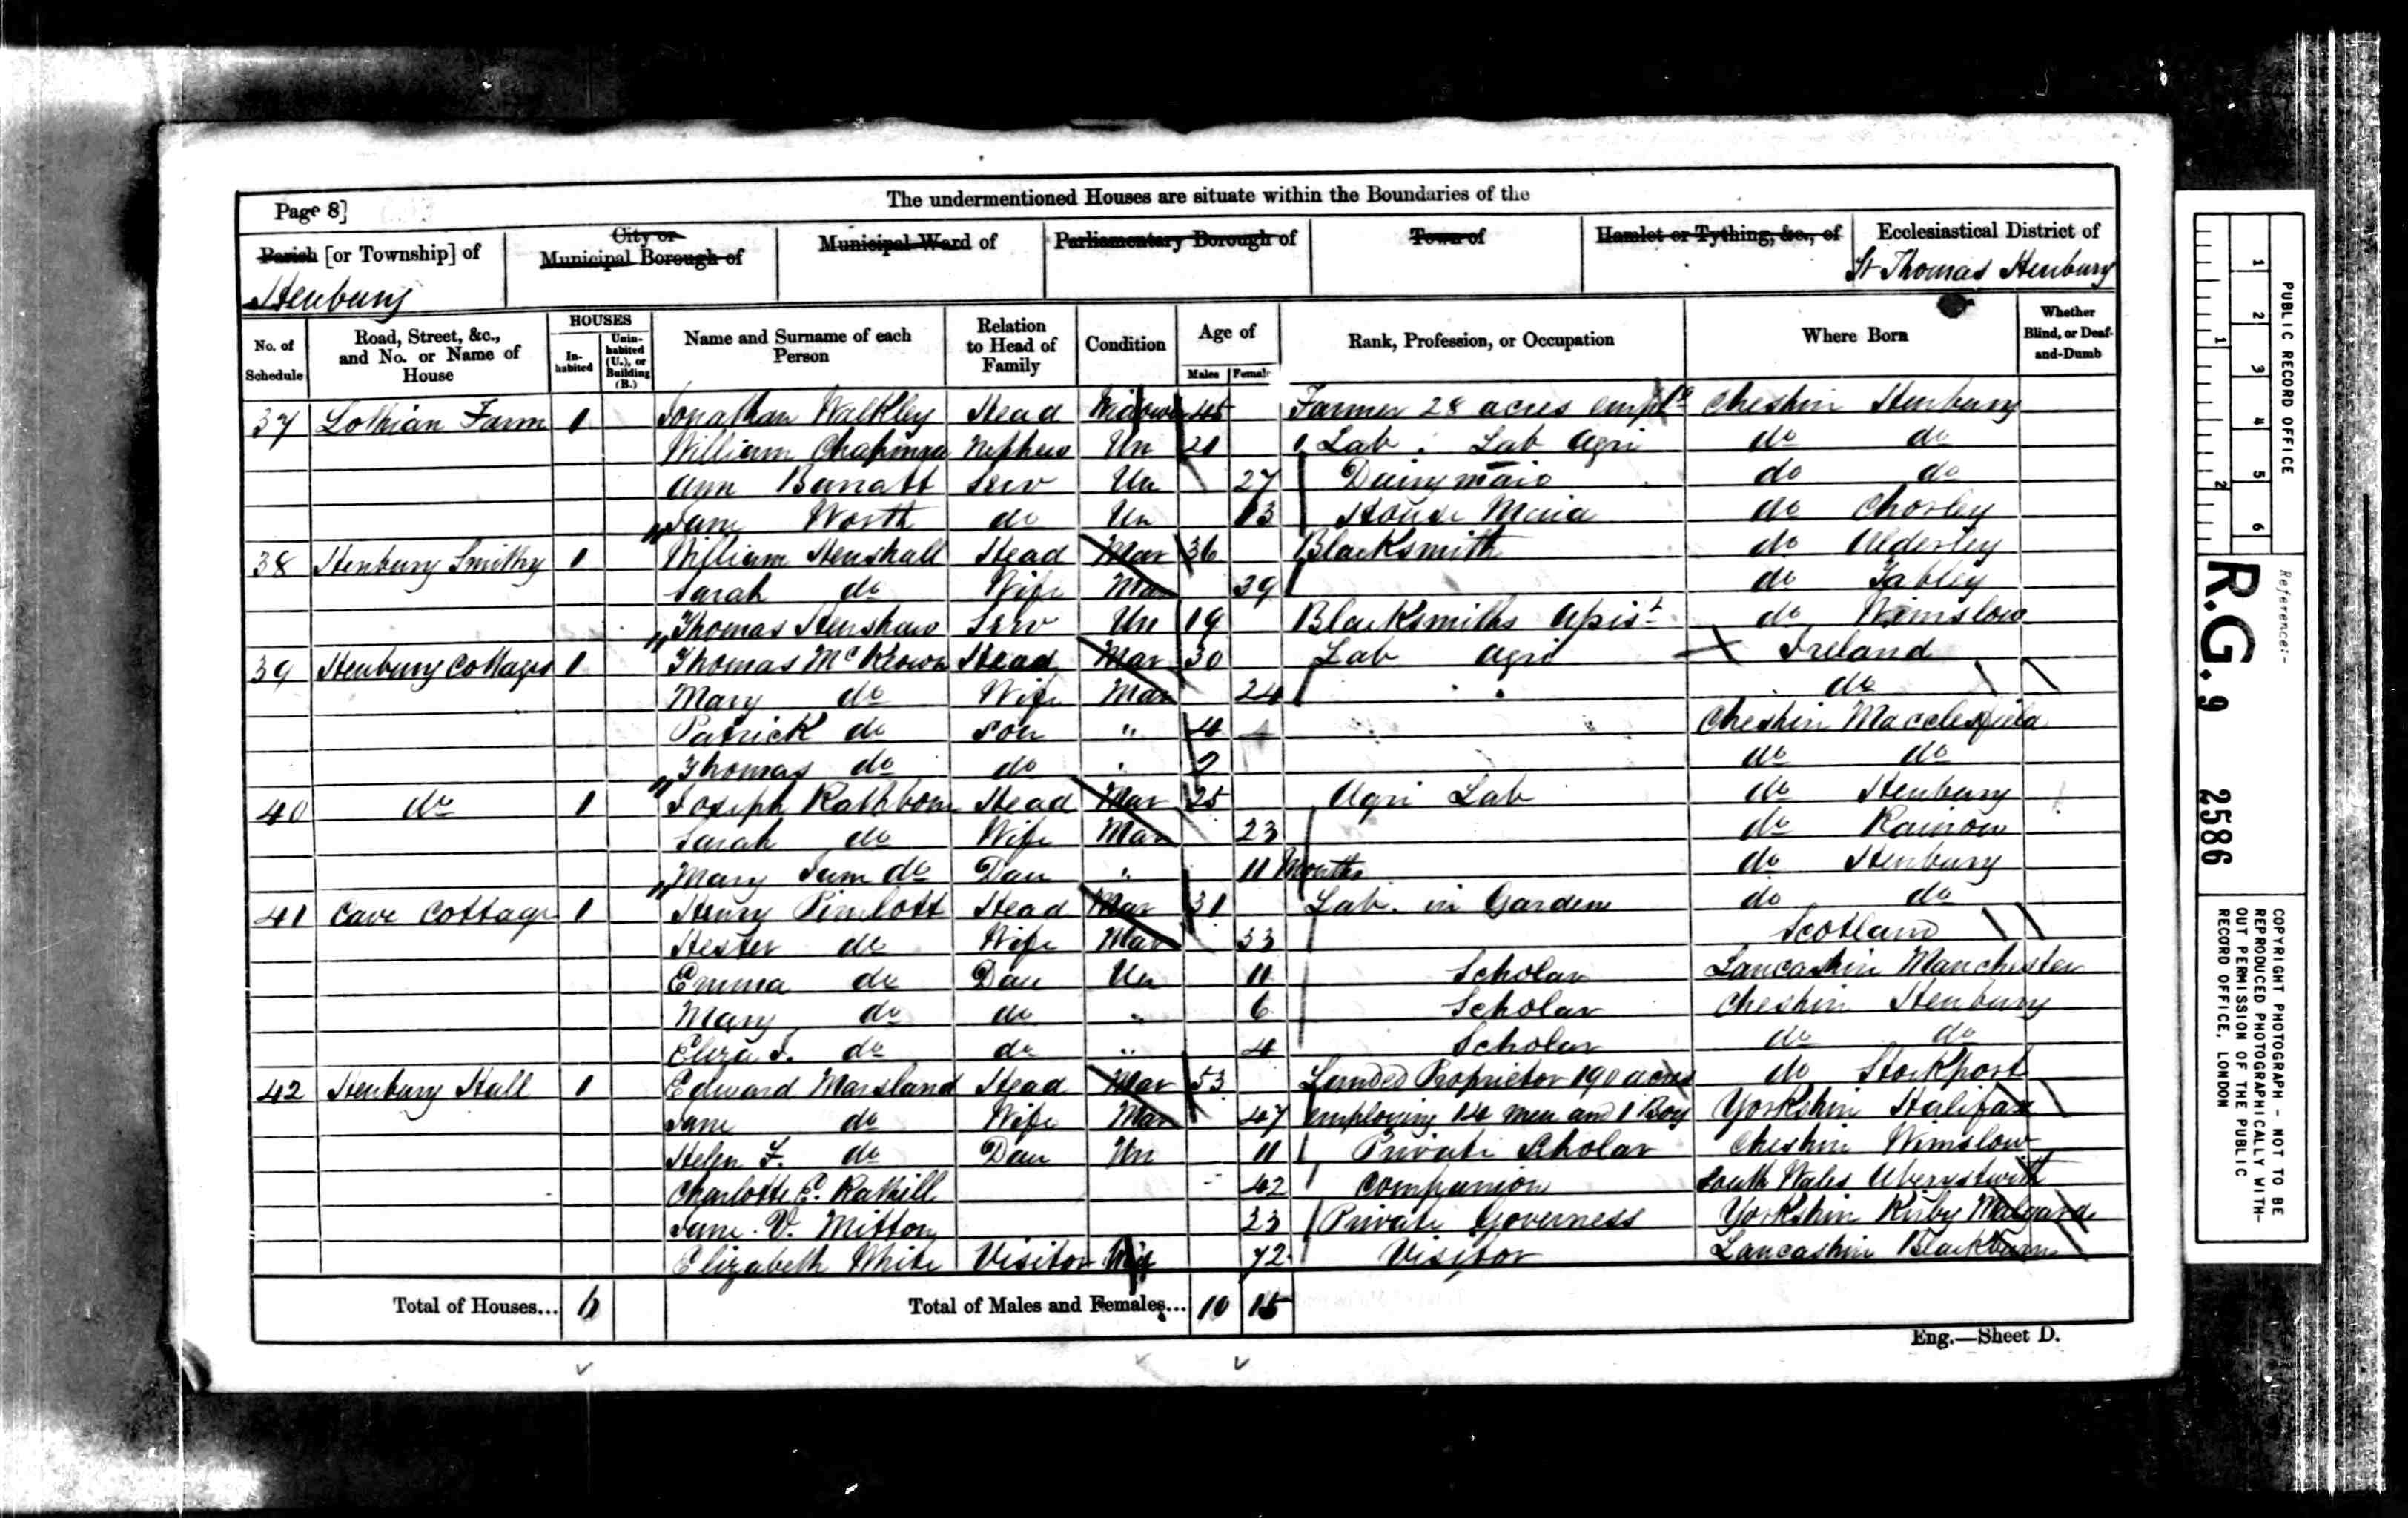 Page 8]
The undermentioned Houses are situate within the Boundaries of the
Parish [or Township] of
City or Municipal Borough of
Municipal Ward of
Parliamentary Borough of
Town of
Hamlet or Tything, &c., of
Ecclesiastical District of
Henbury
St Thomas Henbury
No. of Schedule
Road, Street, &c., and No. or Name of House
HOUSES
In-habited
Unin-habited (U.), or Building (B.)
Name and Surname of each Person
Relation to Head of Family
Condition
Age of
Males
Females
Rank, Profession, or Occupation
Where Born
Whether Blind, or Deaf-and-Dumb
37 Lothian Farm 1 Jonathan Walkley Head Widower 45 Farmer 28 acres empl Cheshire Henbury
William Nephew Un 21 1 Lab. Lab Agri do do
Ann Barratt Serv Un 27 Dairymaid do do
Jane Worth do Un 13 House Maid do Chorley
38 Henbury Smithy 1 William Henshall Head Mar 36 Blacksmith do Alderley
Sarah do Wife Mar 39 do Tabley
Thomas Henshaw Serv Un 19 Blacksmiths do Wimslow
39 Henbury Cottages 1 Thomas McKeown Head Mar 30 Lab Agri Ireland
Mary do Wife Mar 24 do
Patrick do Son " 4 Cheshire Macclesfield
Thomas do do " 2 do do
40 do 1 Joseph Rathbone Head Mar 25 Agri Lab do Henbury
Sarah do Wife Mar 23 do Rainow
Mary Jane do Dau " 11 Months do Henbury
41 Cave Cottage 1 Henry Pimlott Head Mar 31 Lab. in Gardens do do
Hester do Wife Mar 33 Scotland
Emma do Dau Un 11 Scholar Lancashire Manchester
Mary do do " 6 Scholar Cheshire Henbury
Eliza J. do do " 4 Scholar do do
42 Henbury Hall 1 Edward Marsland Head Mar 53 Landed Proprietor 190 acres do Stockport
Jane do Wife Mar 47 employing 14 men and 1 Boy Yorkshire Halifax
Helen F. do Dau Un 11 Private Scholar Cheshire Wimslow
Charlotte E. 42 Companion South Wales Aberystwith
Jane V. Mitton 23 Private Governess Yorkshire Kirby
Elizabeth White Visitor Wid 72 Visitor Lancashire Blackburn
Total of Houses... 6
Total of Males and Females... 10 15
Eng.—Sheet D.
PUBLIC RECORD OFFICE
1 2 3 4 5 6
1 2
Reference:-
R.G. 9 2586
COPYRIGHT PHOTOGRAPH - NOT TO BE
REPRODUCED PHOTOGRAPHICALLY WITH-
OUT PERMISSION OF THE PUBLIC
RECORD OFFICE, LONDON